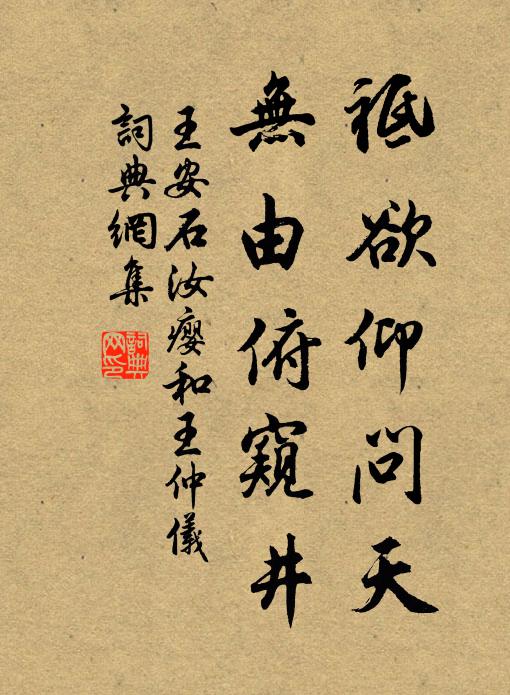 祗欲仰問天
無由俯窺井
王安石汝癭和王仲儀
詞典網集
詞典網印